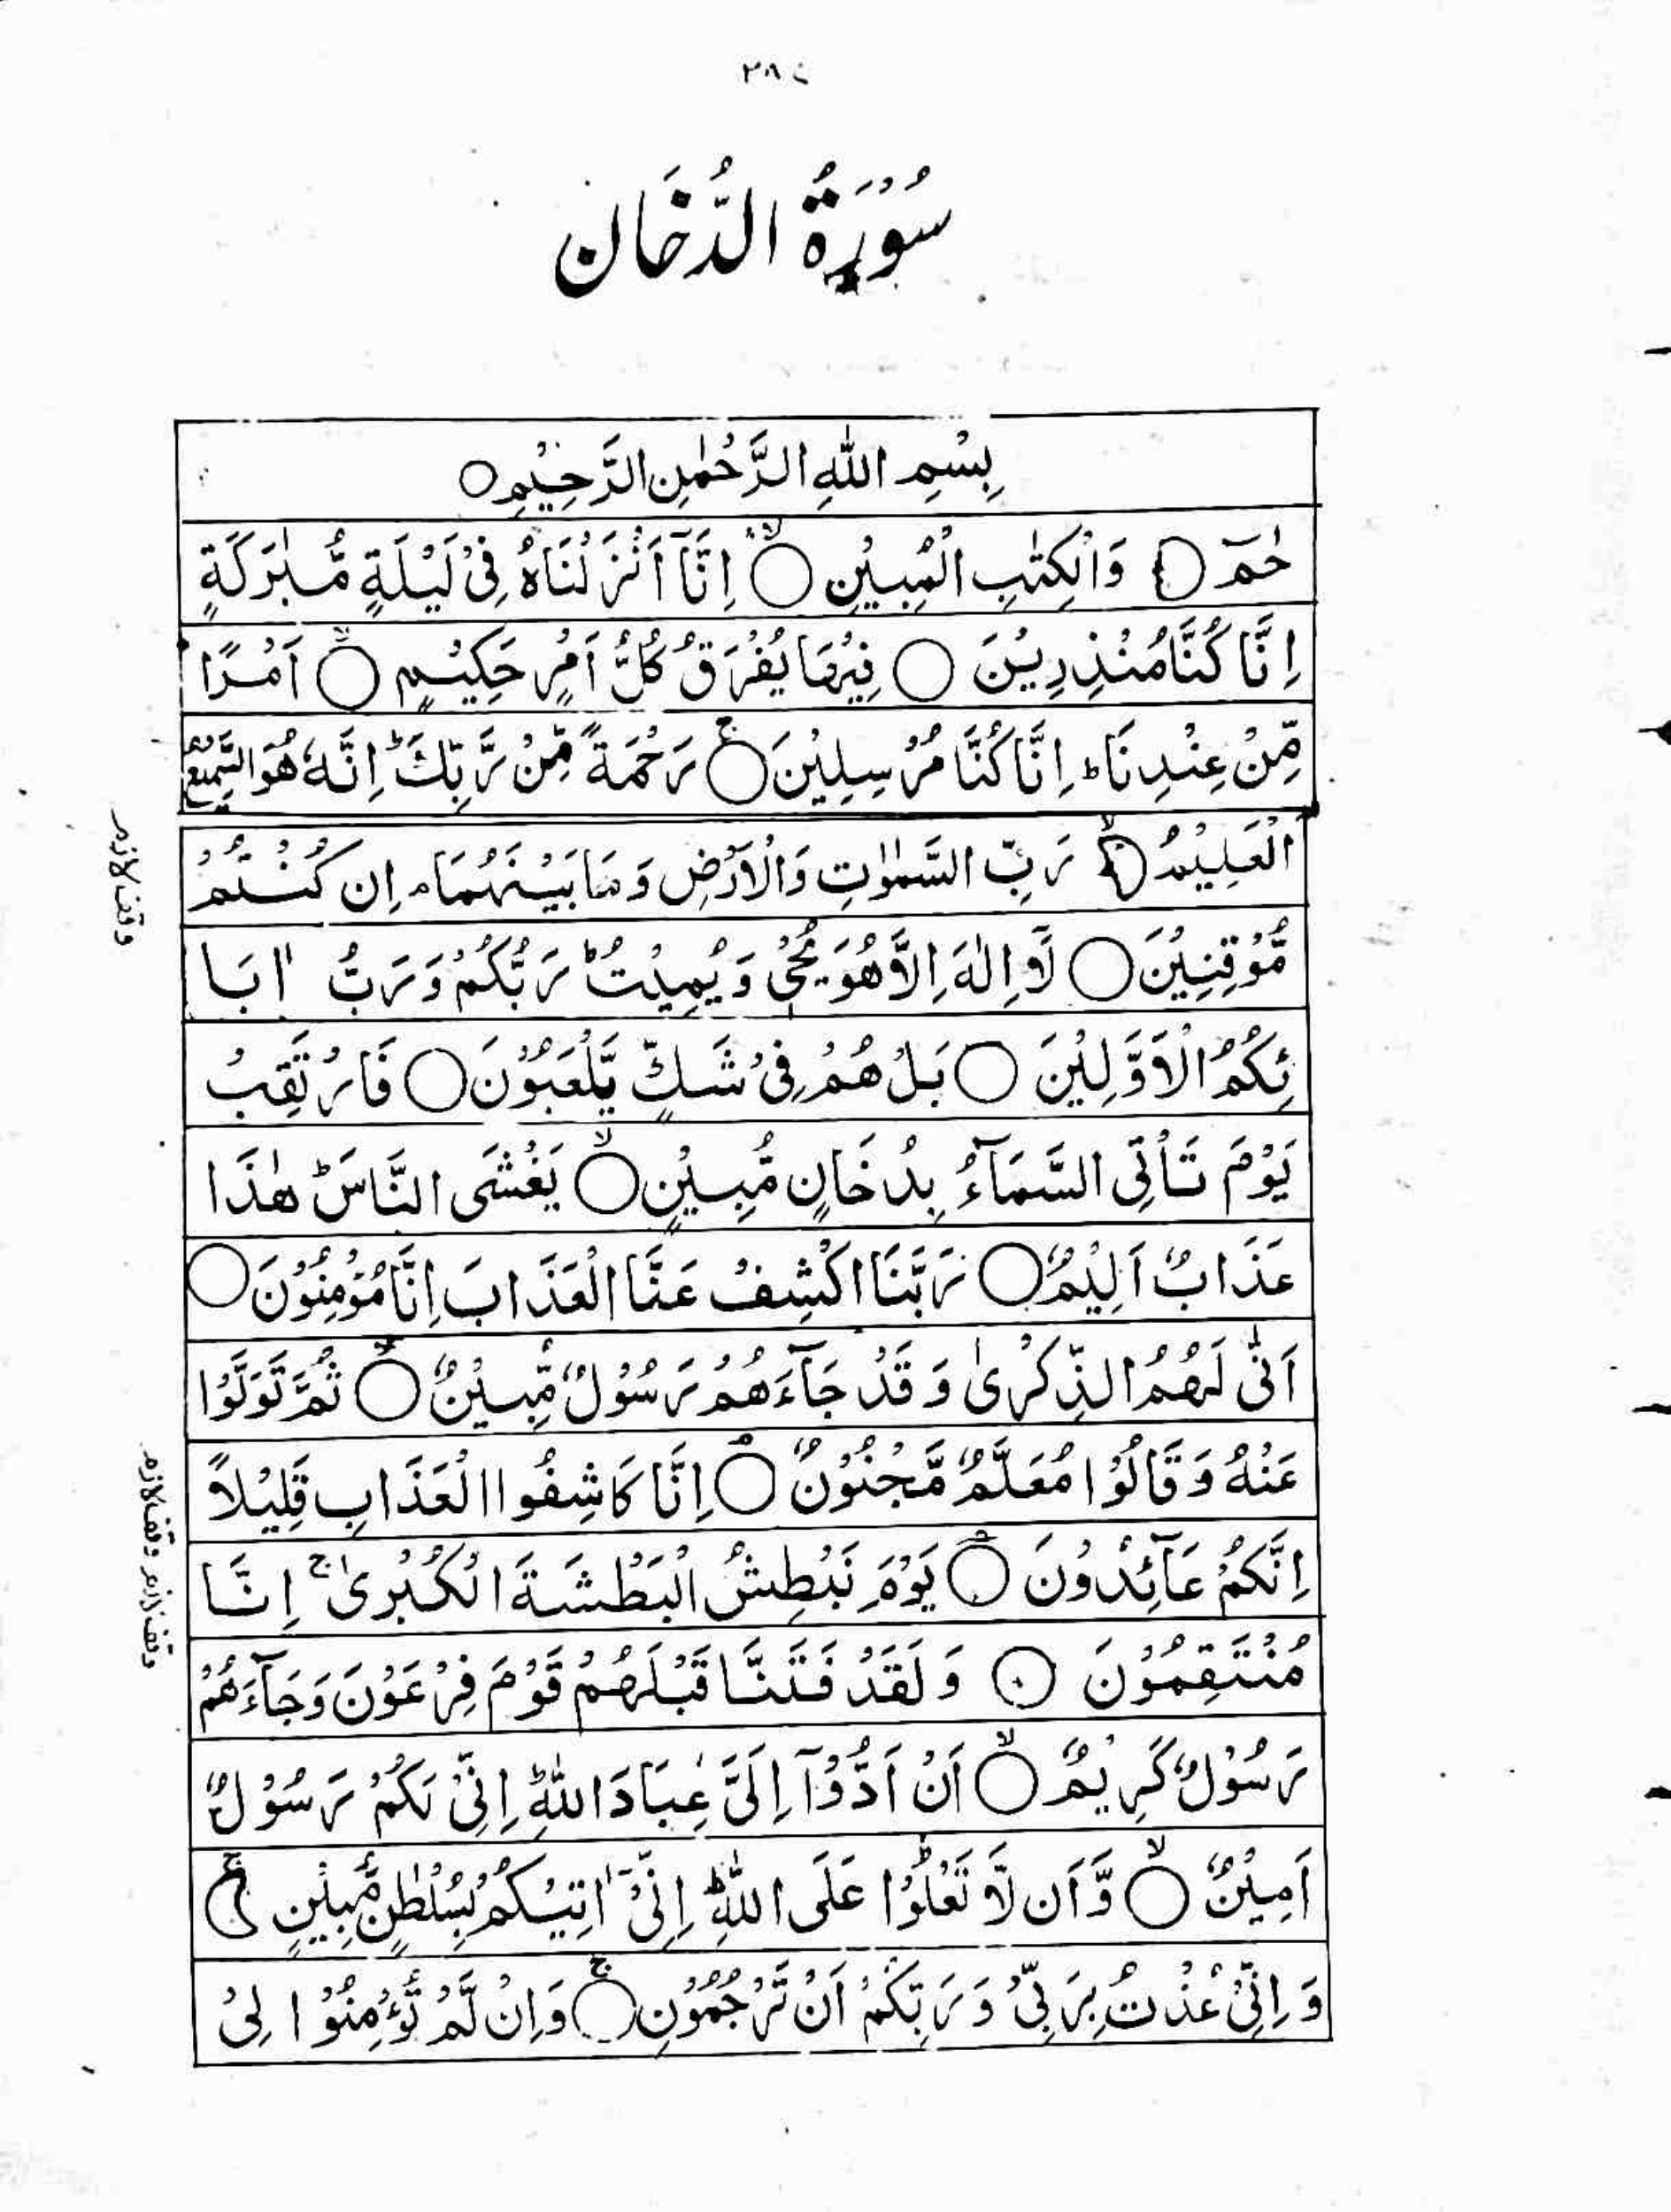 سُوْرَةُ الدُّخَان
بِسْمِ اللهِ الرَّحْمٰنِ الرَّحِيْمِ ○
حٰمٓ ○ وَالْكِتٰبِ الْمُبِيْنِ ○ۙ اِنَّآ اَنْزَلْنَاهُ فِىْ لَيْلَةٍ مُّبٰرَكَةٍ
اِنَّا كُنَّا مُنْذِرِيْنَ ○ فِيْهَا يُفْرَقُ كُلُّ اَمْرٍ حَكِيْمٍ ○ۙ اَمْرًا
مِّنْ عِنْدِنَا ؕ اِنَّا كُنَّا مُرْسِلِيْنَ ○ۚ رَحْمَةً مِّنْ رَّبِّكَ ؕ اِنَّهٗ هُوَ السَّمِيْعُ
الْعَلِيْمُ ○ۙ رَبِّ السَّمٰوٰتِ وَالْاَرْضِ وَمَا بَيْنَهُمَا ۘ اِن كُنْتُمْ
مُّوْقِنِيْنَ ○ لَآ اِلٰهَ اِلَّا هُوَ يُحْىٖ وَيُمِيْتُ ؕ رَبُّكُمْ وَرَبُّ اٰبَا
ئِكُمُ الْاَوَّلِيْنَ ○ بَلْ هُمْ فِىْ شَكٍّ يَّلْعَبُوْنَ ○ فَارْتَقِبْ
يَوْمَ تَاْتِى السَّمَآءُ بِدُخَانٍ مُّبِيْنٍ ○ۙ يَغْشَى النَّاسَ ؕ هٰذَا
عَذَابٌ اَلِيْمٌ ○ رَبَّنَا اكْشِفْ عَنَّا الْعَذَابَ اِنَّا مُؤْمِنُوْنَ ○
اَنّٰى لَهُمُ الذِّكْرٰى وَقَدْ جَآءَهُمْ رَسُوْلٌ مُّبِيْنٌ ○ۙ ثُمَّ تَوَلَّوْا
عَنْهُ وَقَالُوْا مُعَلَّمٌ مَّجْنُوْنٌ ○ۘ اِنَّا كَاشِفُوا الْعَذَابِ قَلِيْلًا
اِنَّكُمْ عَآئِدُوْنَ ○ۘ يَوْمَ نَبْطِشُ الْبَطْشَةَ الْكُبْرٰى ۚ اِنَّا
مُنْتَقِمُوْنَ ○ وَلَقَدْ فَتَنَّا قَبْلَهُمْ قَوْمَ فِرْعَوْنَ وَجَآءَهُمْ
رَسُوْلٌ كَرِيْمٌ ○ۙ اَنْ اَدُّوْٓا اِلَىَّ عِبَادَ اللهِ ؕ اِنِّىْ لَكُمْ رَسُوْلٌ
اَمِيْنٌ ○ۙ وَّاَن لَّا تَعْلُوْا عَلَى اللهِ ؕ اِنِّىْٓ اٰتِيْكُمْ بِسُلْطٰنٍ مُّبِيْنٍ ○ۚ
وَاِنِّىْ عُذْتُ بِرَبِّىْ وَرَبِّكُمْ اَنْ تَرْجُمُوْنِ ○ۚ وَاِنْ لَّمْ تُؤْمِنُوْا لِىْ
وقف لازم
وقف لازم وقف لازم